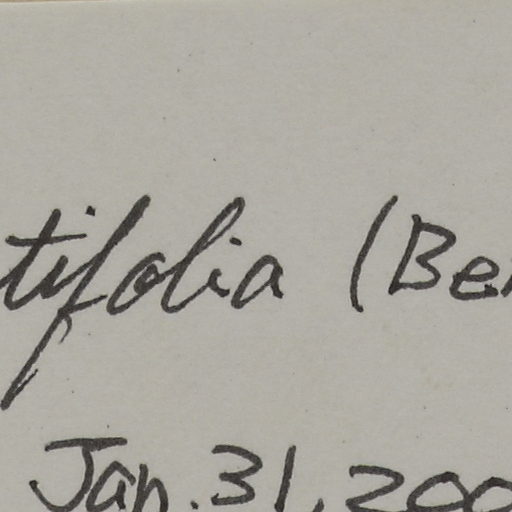 tifolia (Be
Jan. 31, 200